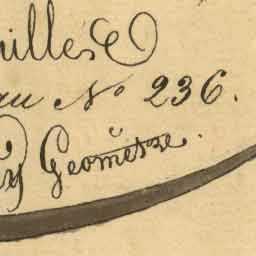 uilles
au No 236.
Geometre.